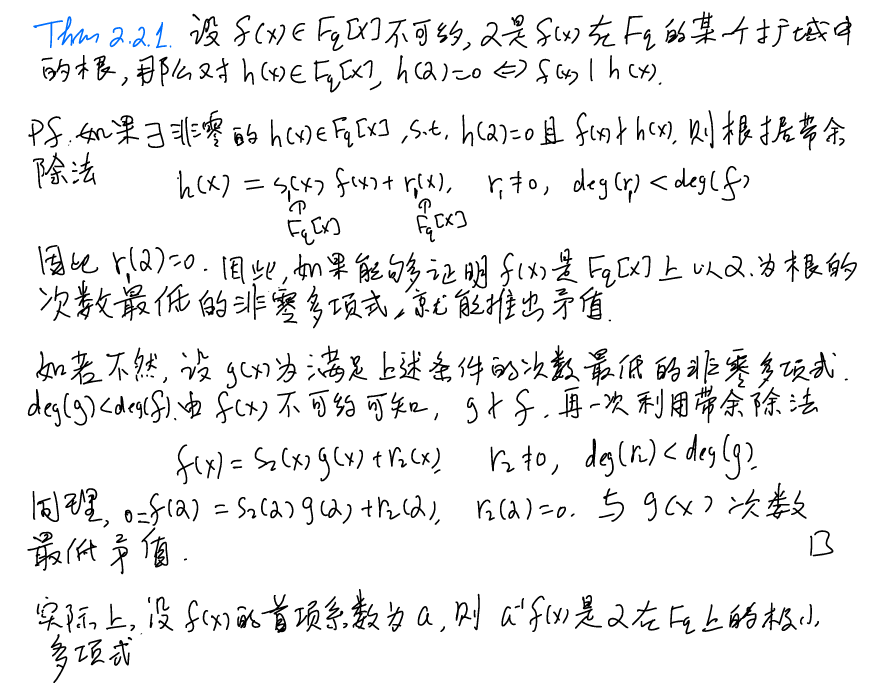 Thm 2.2.1. 设 f(x)∈F_q[x]不可约, α是f(x)在F_q的某个扩域中
的根, 那么对 h(x)∈F_q[x], h(α)=0 ⇔ f(x) | h(x).
Pf. 如果∃非零的h(x)∈F_q[x], s.t. h(α)=0且 f(x)∤h(x). 则根据带余
除法
h(x) = s₁(x) f(x) + r₁(x), r₁≠0, deg(r₁) < deg(f)
↑ ↑
F_q[x] F_q[x]
因此 r₁(α)=0. 因此, 如果能够证明 f(x)是F_q[x]上以α为根的
次数最低的非零多项式, 就能推出矛盾.
如若不然, 设 g(x)为满足上述条件的次数最低的非零多项式.
deg(g)<deg(f). 由 f(x) 不可约可知, g∤f. 再一次利用带余除法
f(x) = s₂(x) g(x) + r₂(x) r₂≠0, deg(r₂) < deg(g).
同理, 0=f(α) = s₂(α) g(α) + r₂(α), r₂(α)=0. 与 g(x) 次数
最低矛盾. □
实际上, 设 f(x)的首项系数为 a, 则 a⁻¹f(x)是α在F_q上的极小
多项式